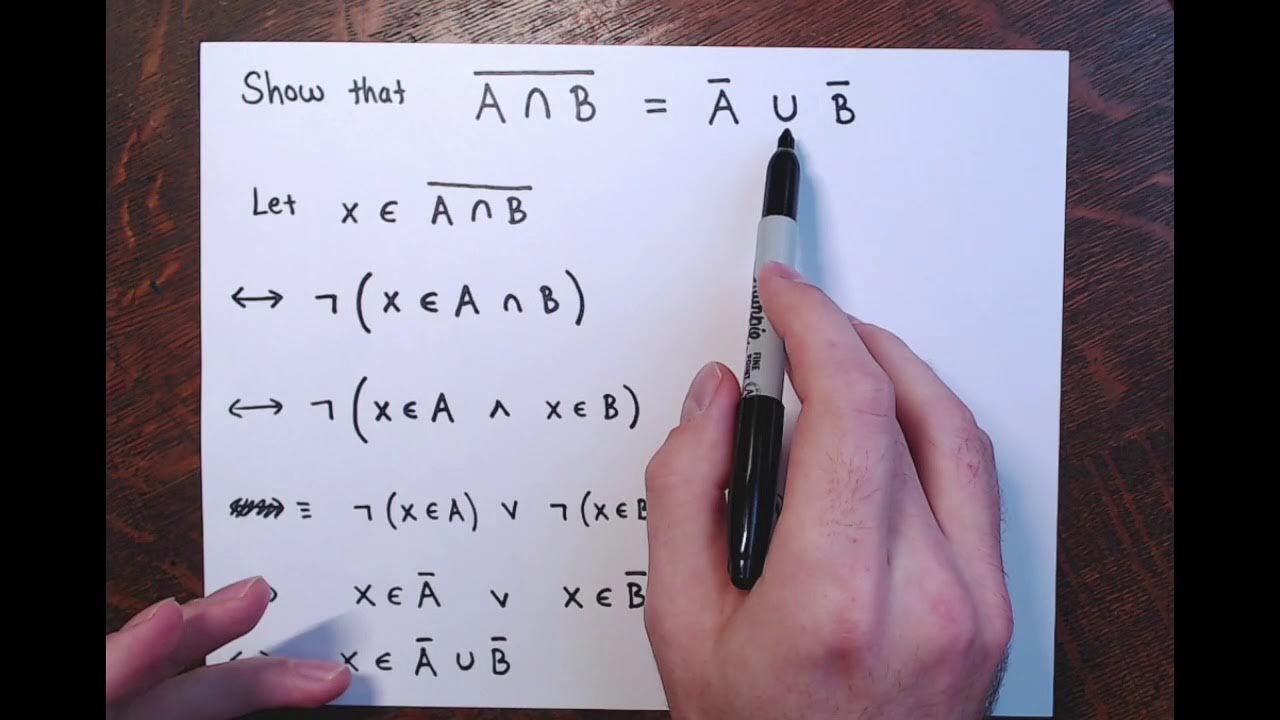 Show that $\overline{A \cap B} = \overline{A} \cup \overline{B}$
Let $x \in \overline{A \cap B}$
↔ ¬(x ∈ A ∩ B)
↔ ¬(x ∈ A ∧ x ∈ B)
≡ ¬(x ∈ A) ∨ ¬(x ∈ B
$x \in \overline{A} \vee x \in \overline{B}$
$x \in \overline{A} \cup \overline{B}$
FINE
POINT